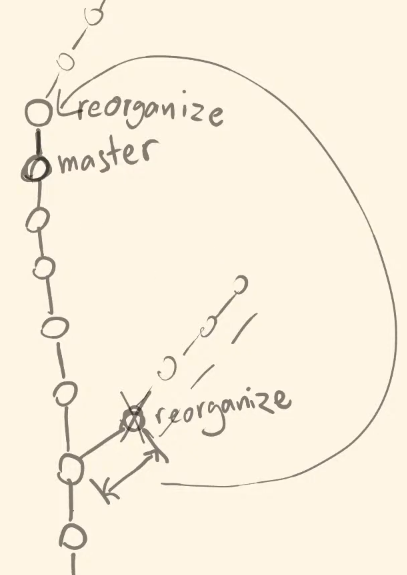 reorganize
master
reorganize